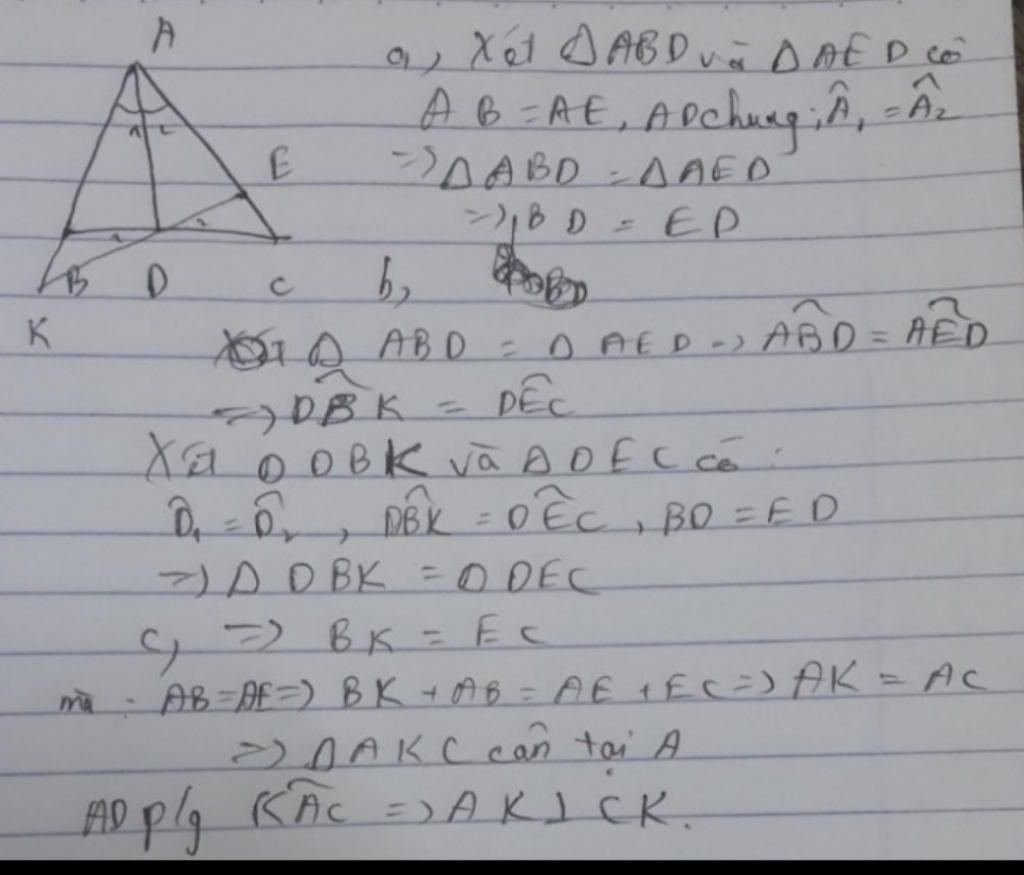 A
1 2
E
1 2
B D C
K
a, Xét ΔABD và ΔAED có
AB = AE, AD chung; Â₁ = Â₂
=> ΔABD = ΔAED
=> BD = ED
b,
Δ ABD = Δ AED => ABD̂ = AED̂
=> DBK̂ = DEĈ
Xét Δ DBK và Δ DEC có :
D̂₁ = D̂₂ , DBK̂ = DEĈ , BD = ED
=> Δ DBK = Δ DEC
c, => BK = EC
mà AB = AE => BK + AB = AE + EC => AK = AC
=> ΔAKC cân tại A
AD p/g KAĈ => AK ⊥ CK.